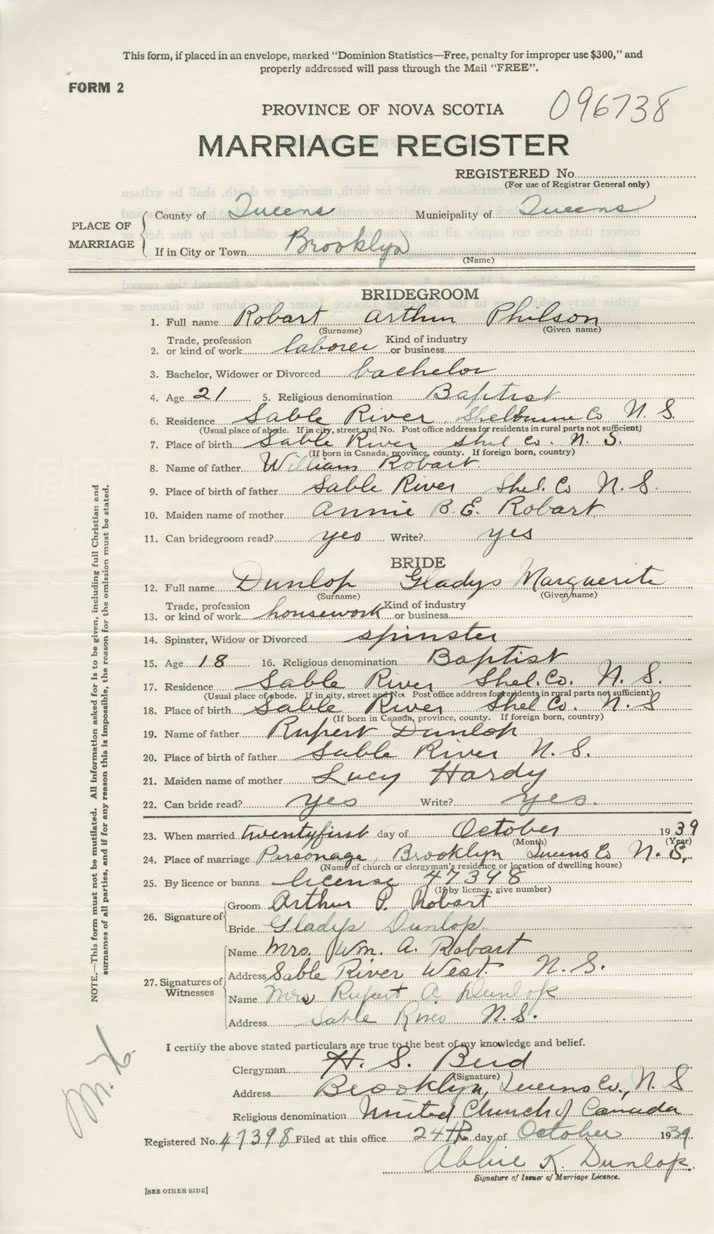 This form, if placed in an envelope, marked "Dominion Statistics—Free, penalty for improper use $300," and
properly addressed will pass through the Mail "FREE".
FORM 2
PROVINCE OF NOVA SCOTIA
096738
MARRIAGE REGISTER
REGISTERED No.
(For use of Registrar General only)
PLACE OF MARRIAGE
County of Queens Municipality of Queens
If in City or Town Brooklyn
(Name)
BRIDEGROOM
1. Full name Robart Arthur Philson
(Surname) (Given name)
2. Trade, profession or kind of work laborer Kind of industry or business
3. Bachelor, Widower or Divorced bachelor
4. Age 21 5. Religious denomination Baptist
6. Residence Sable River, Shelburne Co N. S.
(Usual place of abode. If in city, street and No. Post office address for residents in rural parts not sufficient)
7. Place of birth Sable River Shel Co. N. S.
(If born in Canada, province, county. If foreign born, country)
8. Name of father William Robart
9. Place of birth of father Sable River Shel. Co N. S.
10. Maiden name of mother Annie B. E. Robart
11. Can bridegroom read? yes Write? yes
BRIDE
12. Full name Dunlop Gladys Marguerite
(Surname) (Given name)
13. Trade, profession or kind of work housework Kind of industry or business
14. Spinster, Widow or Divorced spinster
15. Age 18 16. Religious denomination Baptist
17. Residence Sable River Shel. Co. N. S.
(Usual place of abode. If in city, street and No. Post office address for residents in rural parts not sufficient)
18. Place of birth Sable River Shel Co. N. S
(If born in Canada, province, county. If foreign born, country)
19. Name of father Rupert Dunlop
20. Place of birth of father Sable River N. S.
21. Maiden name of mother Lucy Hardy
22. Can bride read? yes Write? yes.
23. When married twentyfirst day of October 1939
(Month) (Year)
24. Place of marriage Parsonage, Brooklyn Queens Co N. S.
(Name of church or clergyman's residence or location of dwelling house)
25. By licence or banns license 47398
(If by licence, give number)
26. Signature of
Groom Arthur P. Robart
Bride Gladys Dunlop
27. Signatures of Witnesses
Name Mrs. Wm. A. Robart
Address Sable River West N. S.
Name Mrs Rupert A. Dunlop
Address Sable River N. S.
I certify the above stated particulars are true to the best of my knowledge and belief.
Clergyman H. S.
(Signature)
Address Brooklyn, Queens Co., N. S
Religious denomination United Church of Canada
Registered No. 47398 Filed at this office 24th day of October 1939
Abbie K. Dunlop.
Signature of Issuer of Marriage Licence.
[SEE OTHER SIDE]
NOTE.—This form must not be mutilated. All information asked for is to be given, including full Christian and
surnames of all parties, and if for any reason this is impossible, the reason for the omission must be stated.